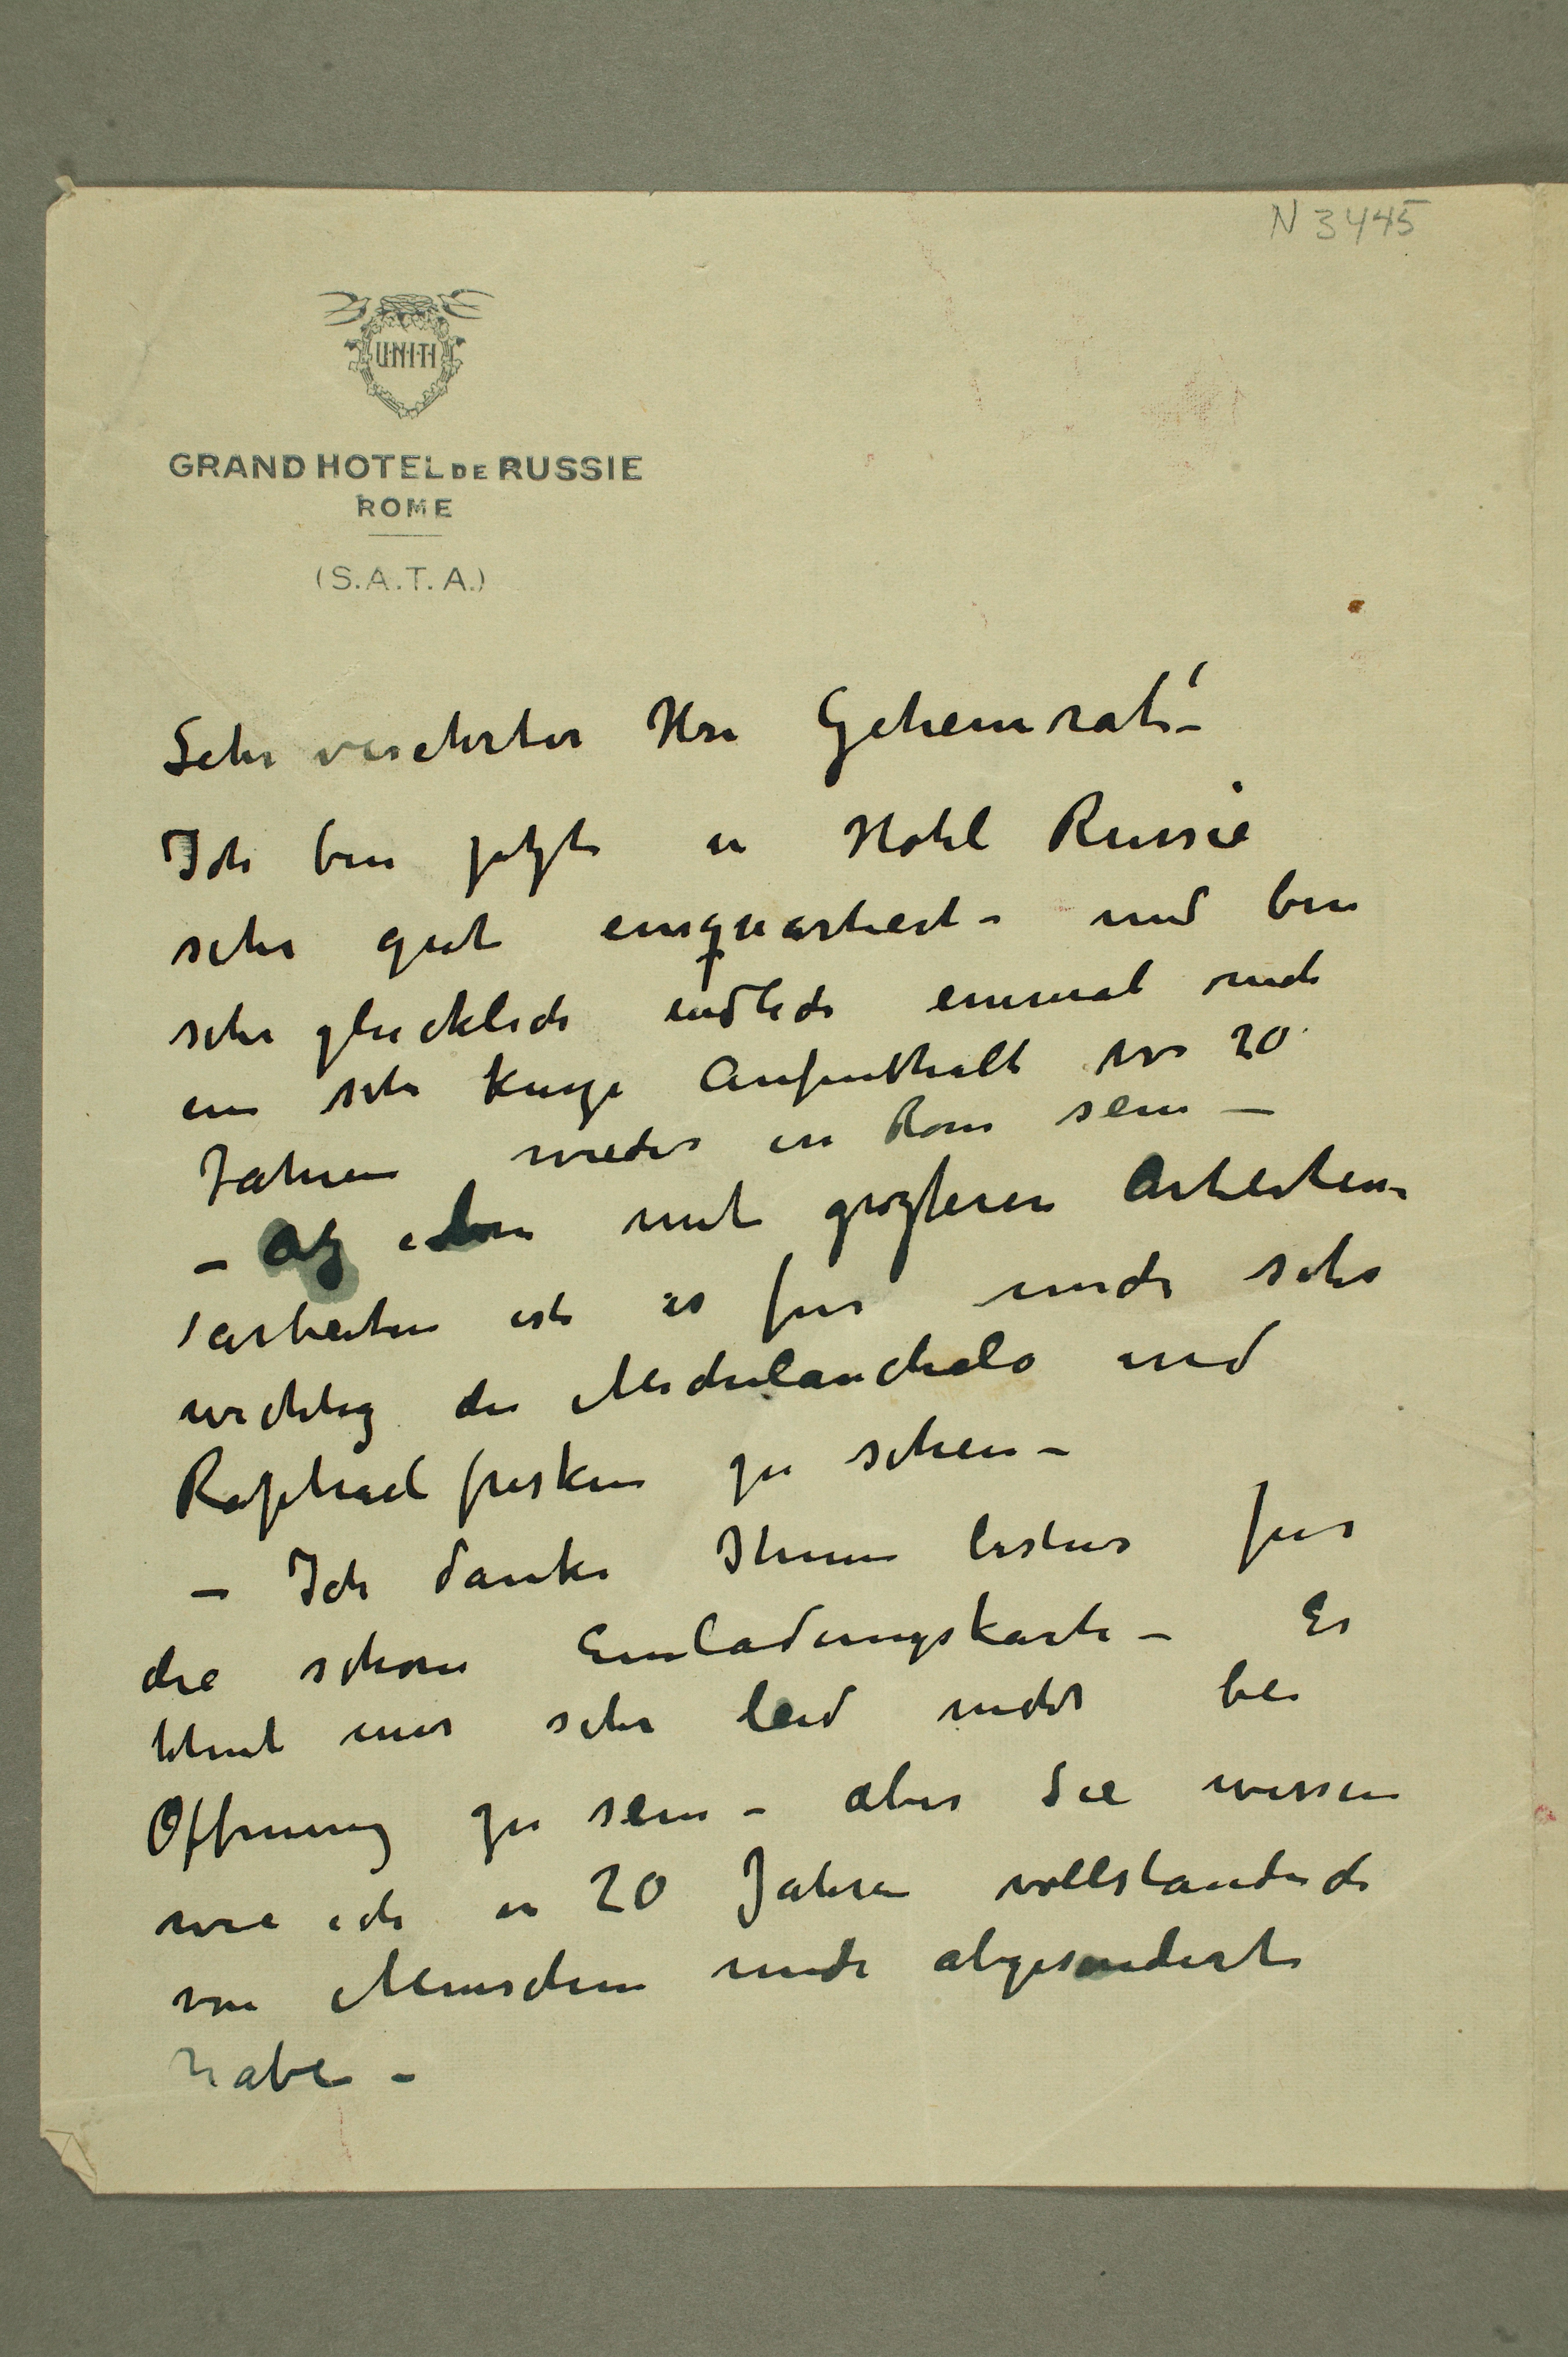 N 3445
UNITI
GRAND HOTEL DE RUSSIE
ROME
(S.A.T.A.)
Sehr verehrter Herr Geheimrat!
Ich bin jetzt in Hotel Russie
sehr gut einquartiert – und bin
sehr glücklich endlich einmal nach
ein sehr kurze Aufenthalt vor 20
Jahren wieder in Rom sein –
– mit grozteren Arbeiten
arbeiten ist es für mich sehr
wichtig die Michelanchelo und
Raphael fresken zu sehen –
– Ich danke Ihnen bestens für
die schone Einladungskarte – Es
thut mir sehr leid nicht bei
Offnung zu sein – aber Sie wissen
wie ich in 20 Jahren vollstandich
von Menschen mich abgesondert
habe –